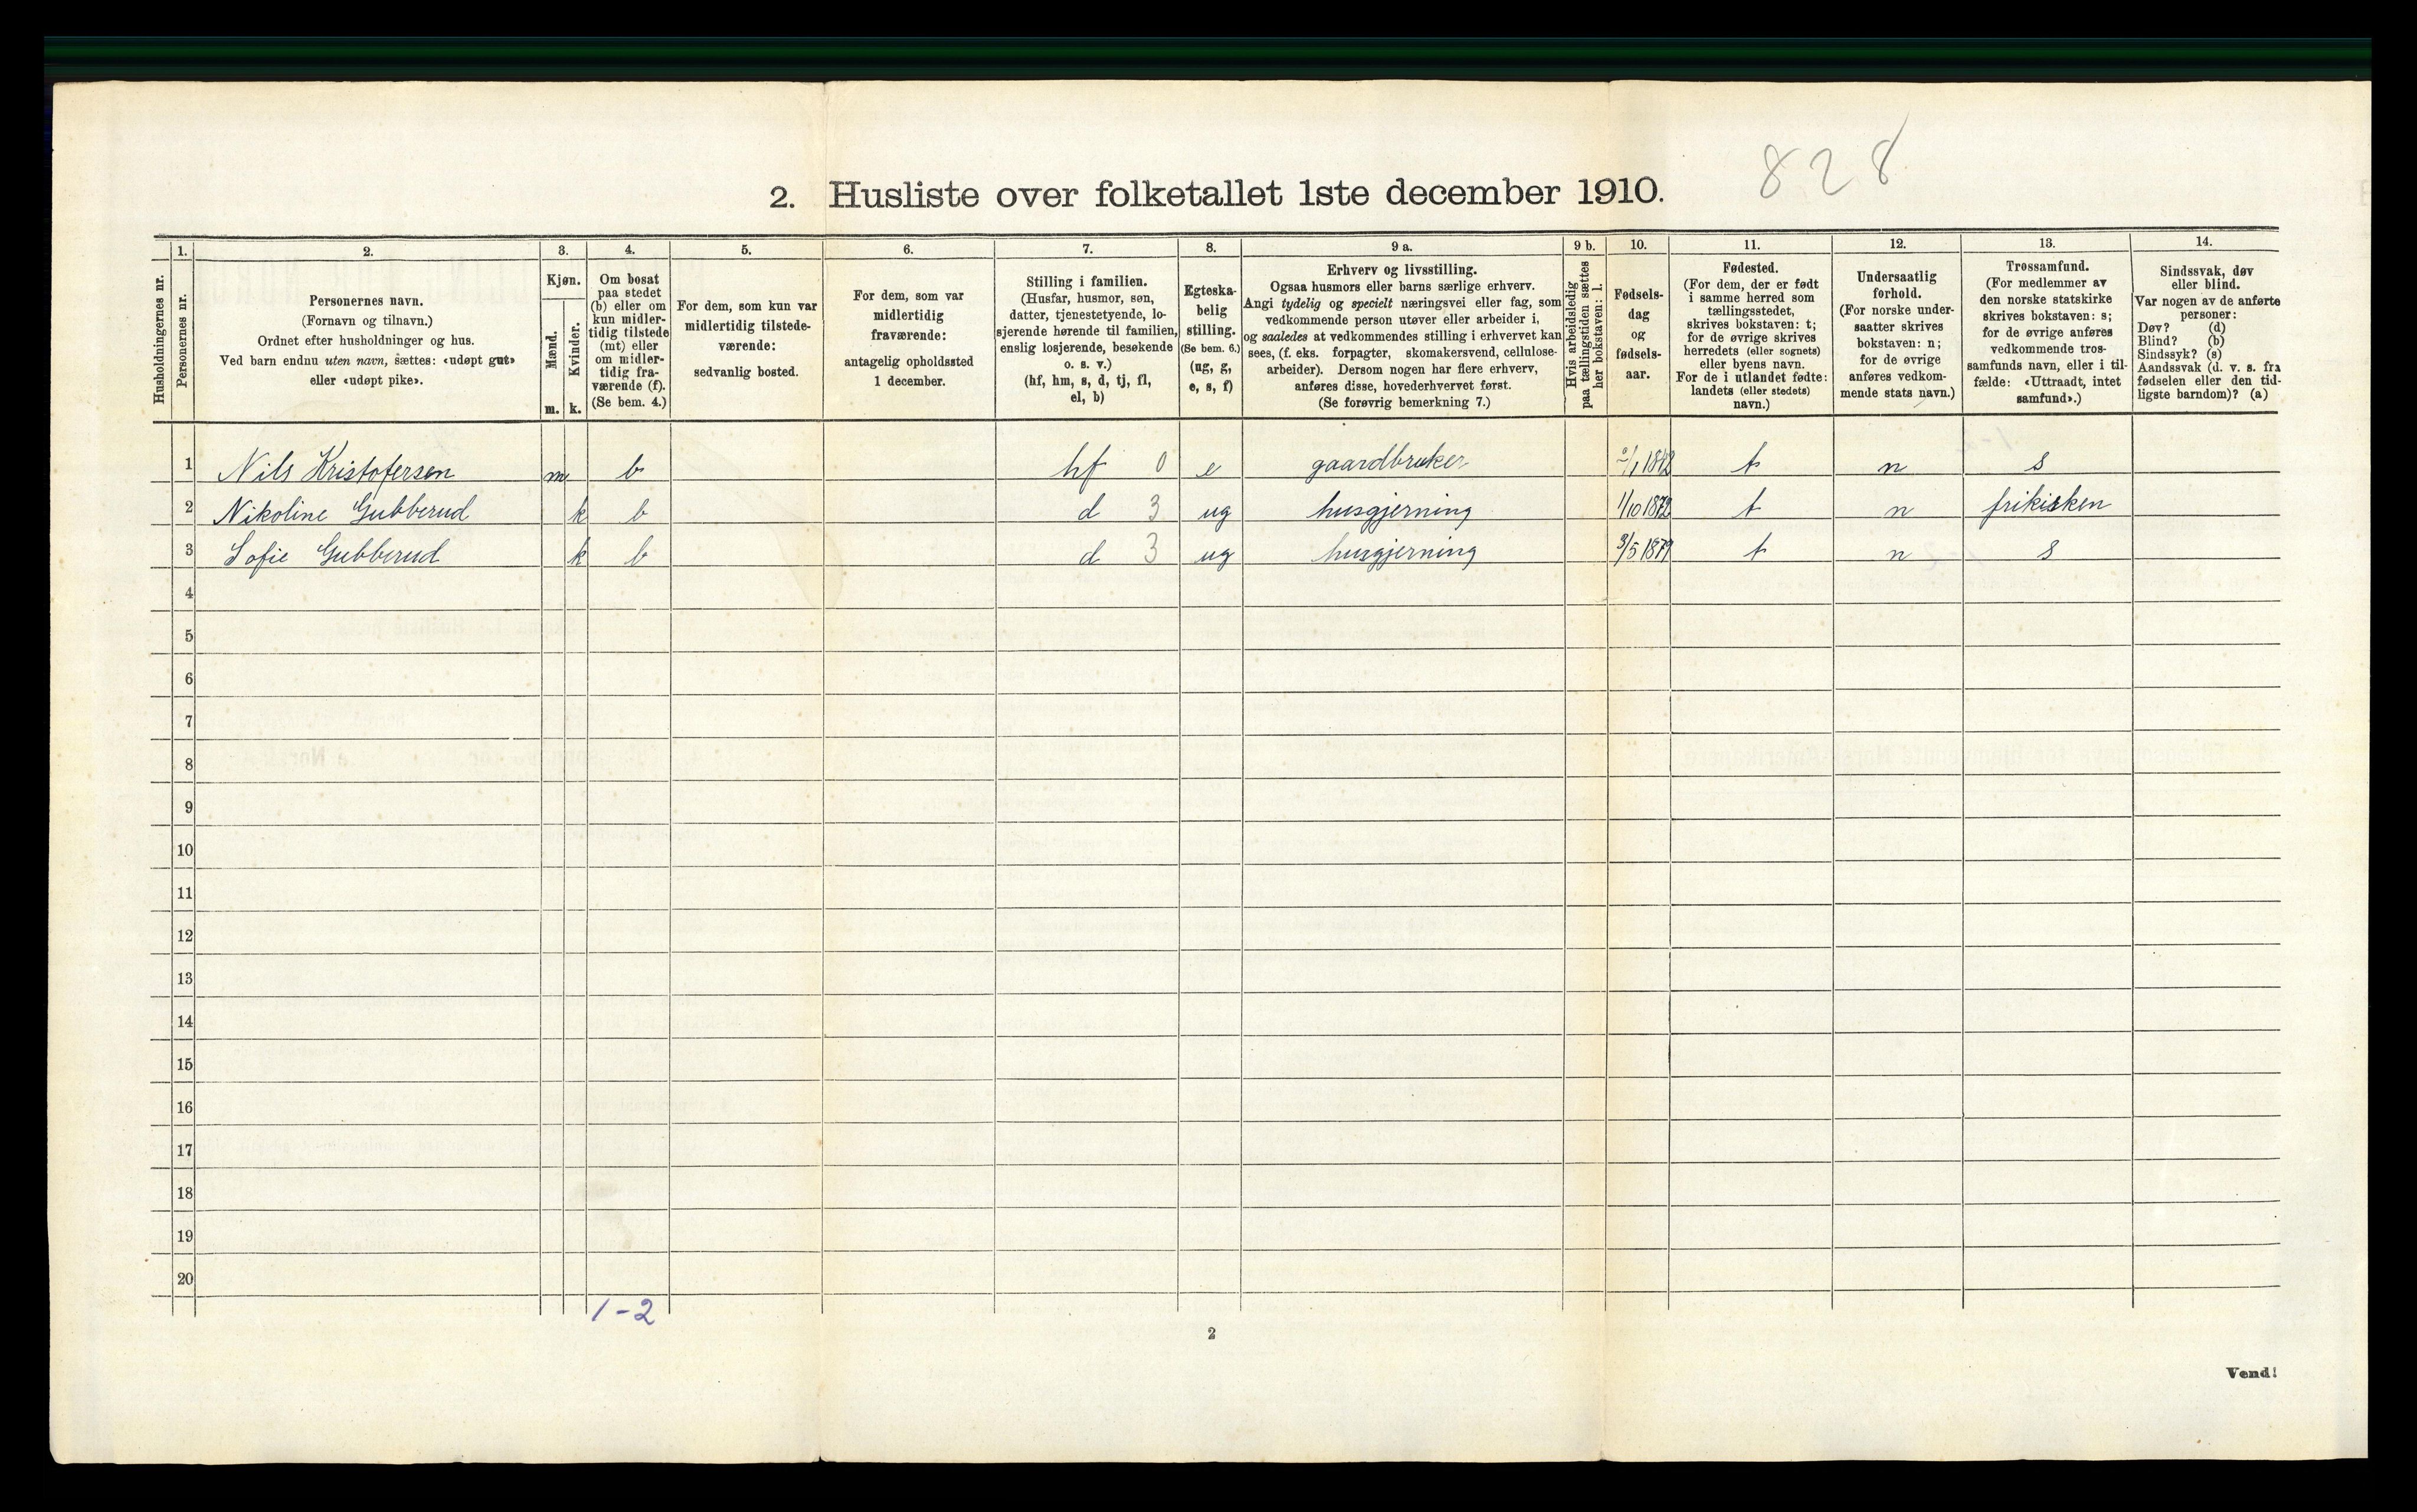 828
2. Husliste over folketallet 1ste december 1910.
Husholdningernes nr.
1.
Personernes nr.
2.
Personernes navn.
(Fornavn og tilnavn.)
Ordnet efter husholdninger og hus.
Ved barn endnu uten navn, sættes: «udøpt gut»
eller «udøpt pike».
3.
Kjøn.
Mænd.
Kvinder.
m. k.
4.
Om bosat
paa stedet
(b) eller om
kun midler-
tidig tilstede
(mt) eller
om midler-
tidig fra-
værende (f).
(Se bem. 4.)
5.
For dem, som kun var
midlertidig tilstede-
værende:
sedvanlig bosted.
6.
For dem, som var
midlertidig
fraværende:
antagelig opholdssted
1 december.
7.
Stilling i familien.
(Husfar, husmor, søn,
datter, tjenestetyende, lo-
sjerende hørende til familien,
enslig losjerende, besøkende
o. s. v.)
(hf, hm, s, d, tj, fl,
el, b)
8.
Egteska-
belig
stilling.
(Se bem. 6.)
(ug, g,
e, s, f)
9 a.
Erhverv og livsstilling.
Ogsaa husmors eller barns særlige erhverv.
Angi tydelig og specielt næringsvei eller fag, som
vedkommende person utøver eller arbeider i,
og saaledes at vedkommendes stilling i erhvervet kan
sees, (f. eks. forpagter, skomakersvend, cellulose-
arbeider). Dersom nogen har flere erhverv,
anføres disse, hovederhvervet først.
(Se forøvrig bemerkning 7.)
9 b.
Hvis arbeidsledig
paa tællingstiden sættes
her bokstaven: l.
10.
Fødsels-
dag
og
fødsels-
aar.
11.
Fødested.
(For dem, der er født
i samme herred som
tællingsstedet,
skrives bokstaven: t;
for de øvrige skrives
herredets (eller sognets)
eller byens navn.
For de i utlandet fødte:
landets (eller stedets)
navn.)
12.
Undersaatlig
forhold.
(For norske under-
saatter skrives
bokstaven: n;
for de øvrige
anføres vedkom-
mende stats navn.)
13.
Trossamfund.
(For medlemmer av
den norske statskirke
skrives bokstaven: s;
for de øvrige anføres
vedkommende tros-
samfunds navn, eller i til-
fælde: «Uttraadt, intet
samfund».)
14.
Sindssvak, døv
eller blind.
Var nogen av de anførte
personer:
Døv? (d)
Blind? (b)
Sindssyk? (s)
Aandssvak (d. v. s. fra
fødselen eller den tid-
ligste barndom)? (a)
1 Nils Kristofersen m b hf 0 e gaardbruker t n s
2 Nikoline Gubberud k b d 3 ug husgjerning 1/10 1872 t n frikirken
3 Sofie Gubberud k b d 3 ug husgjerning 3/5 1879 t n s
4
5
6
7
8
9
10
11
12
13
14
15
16
17
18
19
20
1-2
2
Vend!